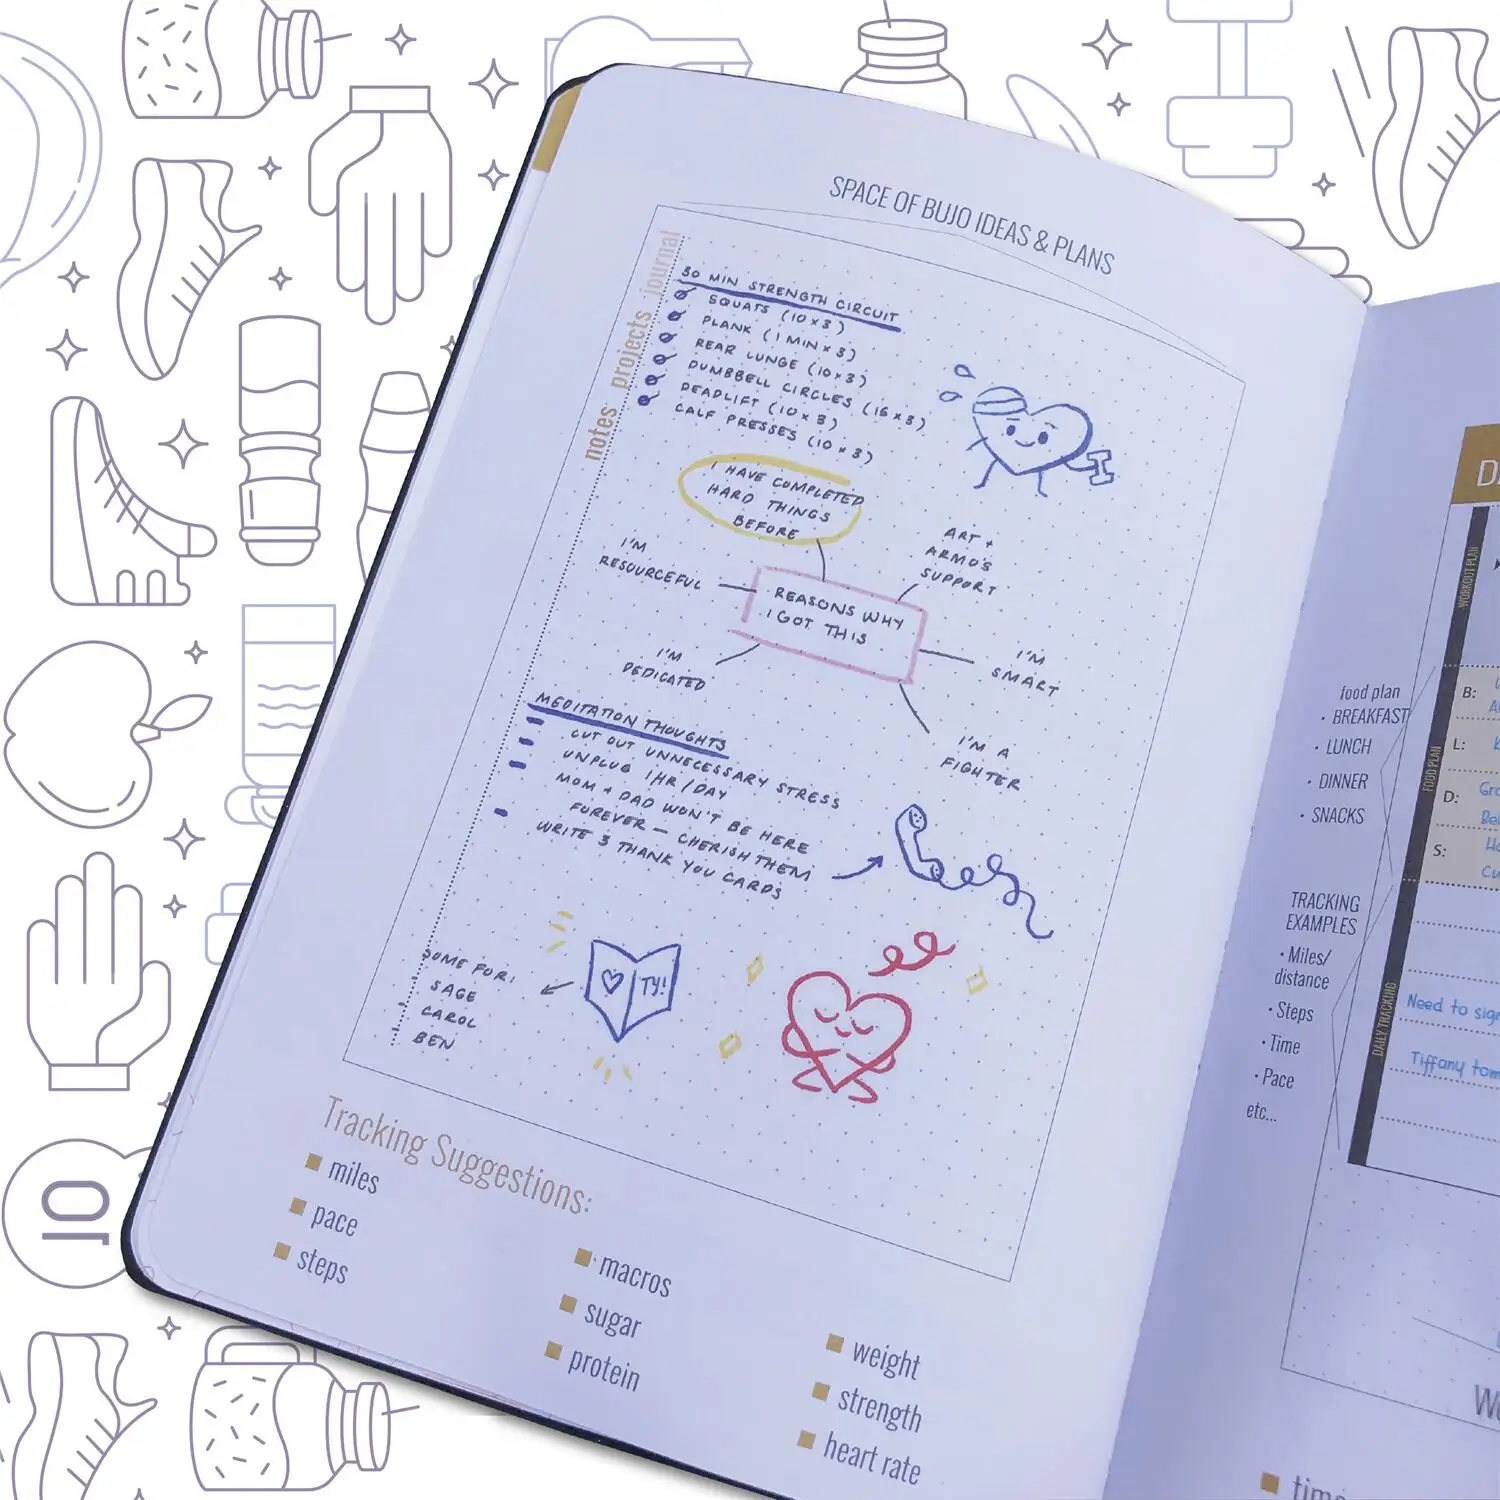 SPACE OF BUJO IDEAS & PLANS
notes projects journal
30 MIN STRENGTH CIRCUIT
SQUATS (10 x 3)
PLANK (1 MIN x 3)
REAR LUNGE (10 x 3)
DUMBBELL CIRCLES (15 x 3)
DEADLIFT (10 x 3)
CALF PRESSES (10 x 3)
I HAVE COMPLETED
HARD THINGS
BEFORE
ART +
ARMO'S
SUPPORT
I'M
RESOURCEFUL
REASONS WHY
I GOT THIS
I'M
SMART
I'M
DEDICATED
I'M A
FIGHTER
MEDITATION THOUGHTS
CUT OUT UNNECESSARY STRESS
UNPLUG 1HR/DAY
MOM + DAD WON'T BE HERE
FOREVER — CHERISH THEM
WRITE 3 THANK YOU CARDS
TY!
SOME FOR:
SAGE
CAROL
BEN
Tracking Suggestions:
miles
pace
steps
macros
sugar
protein
weight
strength
heart rate
food plan
• BREAKFAST
• LUNCH
• DINNER
• SNACKS
TRACKING
EXAMPLES
• Miles/
distance
• Steps
• Time
• Pace
etc...
WORKOUT PLAN
FOOD PLAN
B:
L:
D:
S:
DAILY TRACKING
Need to sig
Tiffany tom
time
10